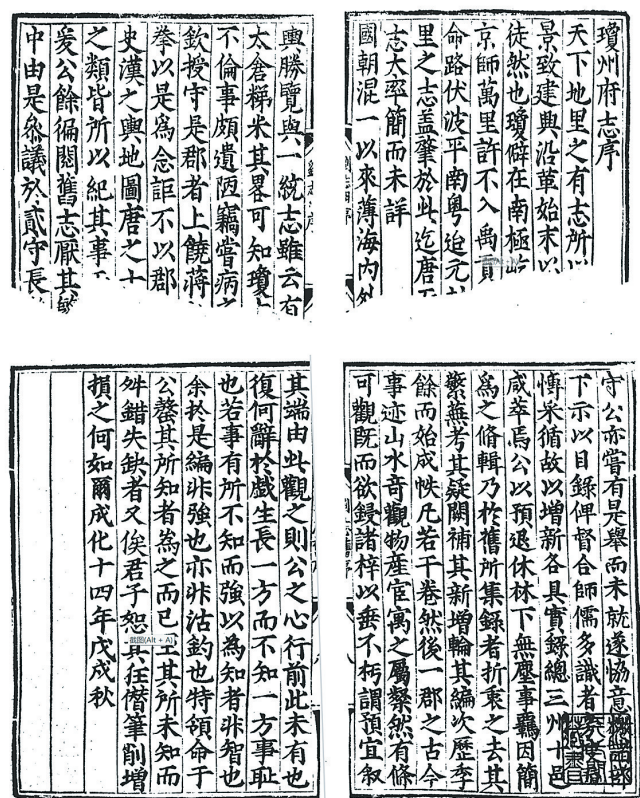 瓊州府志序
天下地里之有志所以
景致建興沿革始末以
徒然也瓊僻在南極
京師萬里許不入禹貢
命路伏波平南粵迨元
里之志蓋肇於此迄唐
志太率簡而未詳
國朝混一以來薄海內外
輿勝覽與一統志雖云有
太倉稊米其畧可知瓊
不倫事頗遺陋竊嘗病之
欽授守是郡者上饒蔣
拳以是為念詎不以郡
史漢之輿地圖唐之十
之類皆所以紀其事
爰公餘徧閱舊志厭其繁
中由是叅議於貳守長
守公亦嘗有是舉而未就遂協意
下示以目錄俾督合師儒多識者
慱采循故以增新各具實錄總三州十邑
咸萃焉公以預退休林下無塵事羈因簡
為之脩輯乃於舊所集錄者折衷之去其
繁蕪考其疑闕補其新增輪其編次歷季
餘而始成帙凡若干卷然後一郡之古今
事迹山水奇觀物產宦寓之屬粲然有條
可觀既而欲鋟諸梓以垂不朽謂預宜叙
其端由此觀之則公之心行前此未有也
復何辭於戲生長一方而不知一方事耻
也若事有所不知而強以為知者非智也
余於是編非強也亦非沽釣也特領命于
公罄其所知者為之而已至其所未知而
舛錯失缺者又俟君子恕其狂僭筆削增
損之何如爾成化十四年戊戌秋
截图(Alt + A)